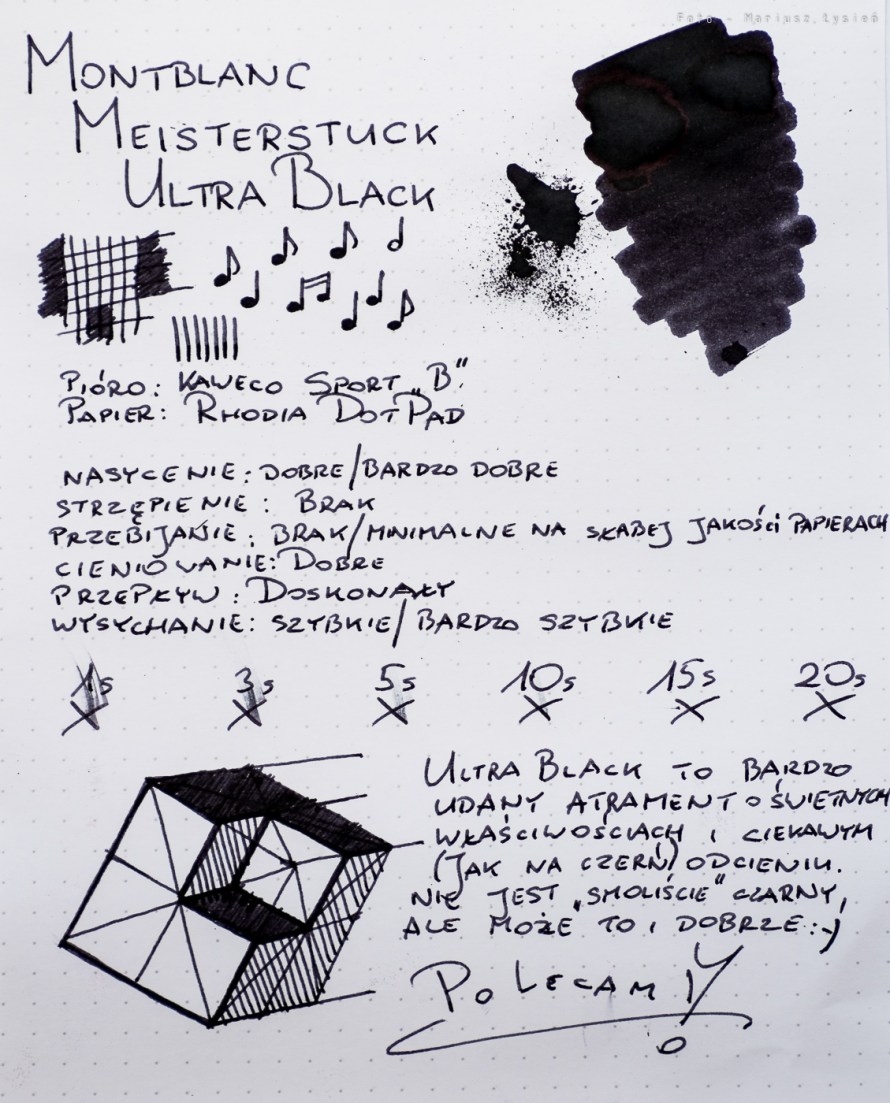 Foto - Mariusz Łysień
MONTBLANC
MEISTERSTUCK
ULTRA BLACK
PIÓRO: KAWECO SPORT „B"
PAPIER: RHODIA DOTPAD
NASYCENIE: DOBRE/BARDZO DOBRE
STRZĘPIENIE: BRAK
PRZEBIJANIE: BRAK/MINIMALNE NA SŁABEJ JAKOŚCI PAPIERACH
CIENIOWANIE: DOBRE
PRZEPŁYW: DOSKONAŁY
WYSYCHANIE: SZYBKIE/BARDZO SZYBKIE
1s 3s 5s 10s 15s 20s
X X X X X X
ULTRA BLACK TO BARDZO
UDANY ATRAMENT O ŚWIETNYCH
WŁAŚCIWOŚCIACH I CIEKAWYM
(JAK NA CZERŃ) ODCIENIU.
NIE JEST „SMOLIŚCIE" CZARNY,
ALE MOŻE TO I DOBRZE :-)
POLECAM!